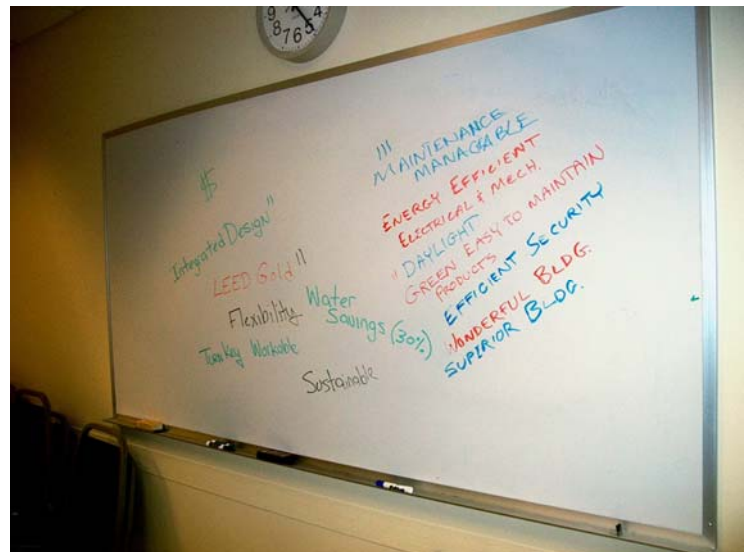 9
8
7
6
5
4
$
Integrated Design"
LEED Gold"
Flexibility
Water
Savings (30%)
Turnkey Workable
Sustainable
III
MAINTENANCE
MANAGABLE
ENERGY EFFICIENT
ELECTRICAL & MECH.
"DAYLIGHT
GREEN EASY TO MAINTAIN
PRODUCTS
EFFICIENT SECURITY
WONDERFUL BLDG.
SUPERIOR BLDG.